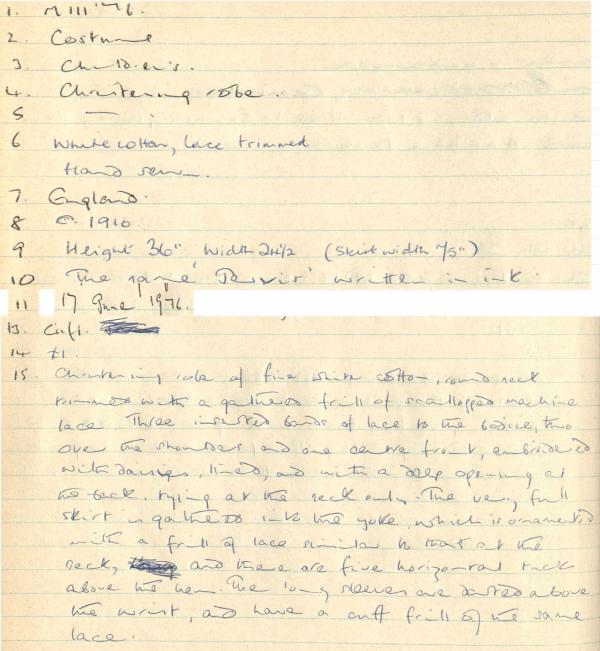 1.
2. Costume
3. Children's.
4. Christening robe.
5 —
6 White cotton, lace trimmed
Hand sewn.
7. England.
8 C. 1910
9 Height 36" Width 24½ (Skirt width 75")
10 The name 'Jervis' written in ink.
11 17 June 1976.
13. Gift.
14 £1.
15. Christening robe of fine white cotton, round neck
trimmed with a gathered frill of scalloped machine
lace. Three inserted bands of lace to the bodice, two
over the shoulders and one centre front, embroidered
with daisies, lined, and with a deep opening at
the back, tying at the neck only. The very full
skirt is gathered into the yoke, which is ornamented
with a frill of lace similar to that at the
neck, and there are five horizontal tucks
above the hem. The long sleeves are darted above
the wrist, and have a cuff frill of the same
lace.